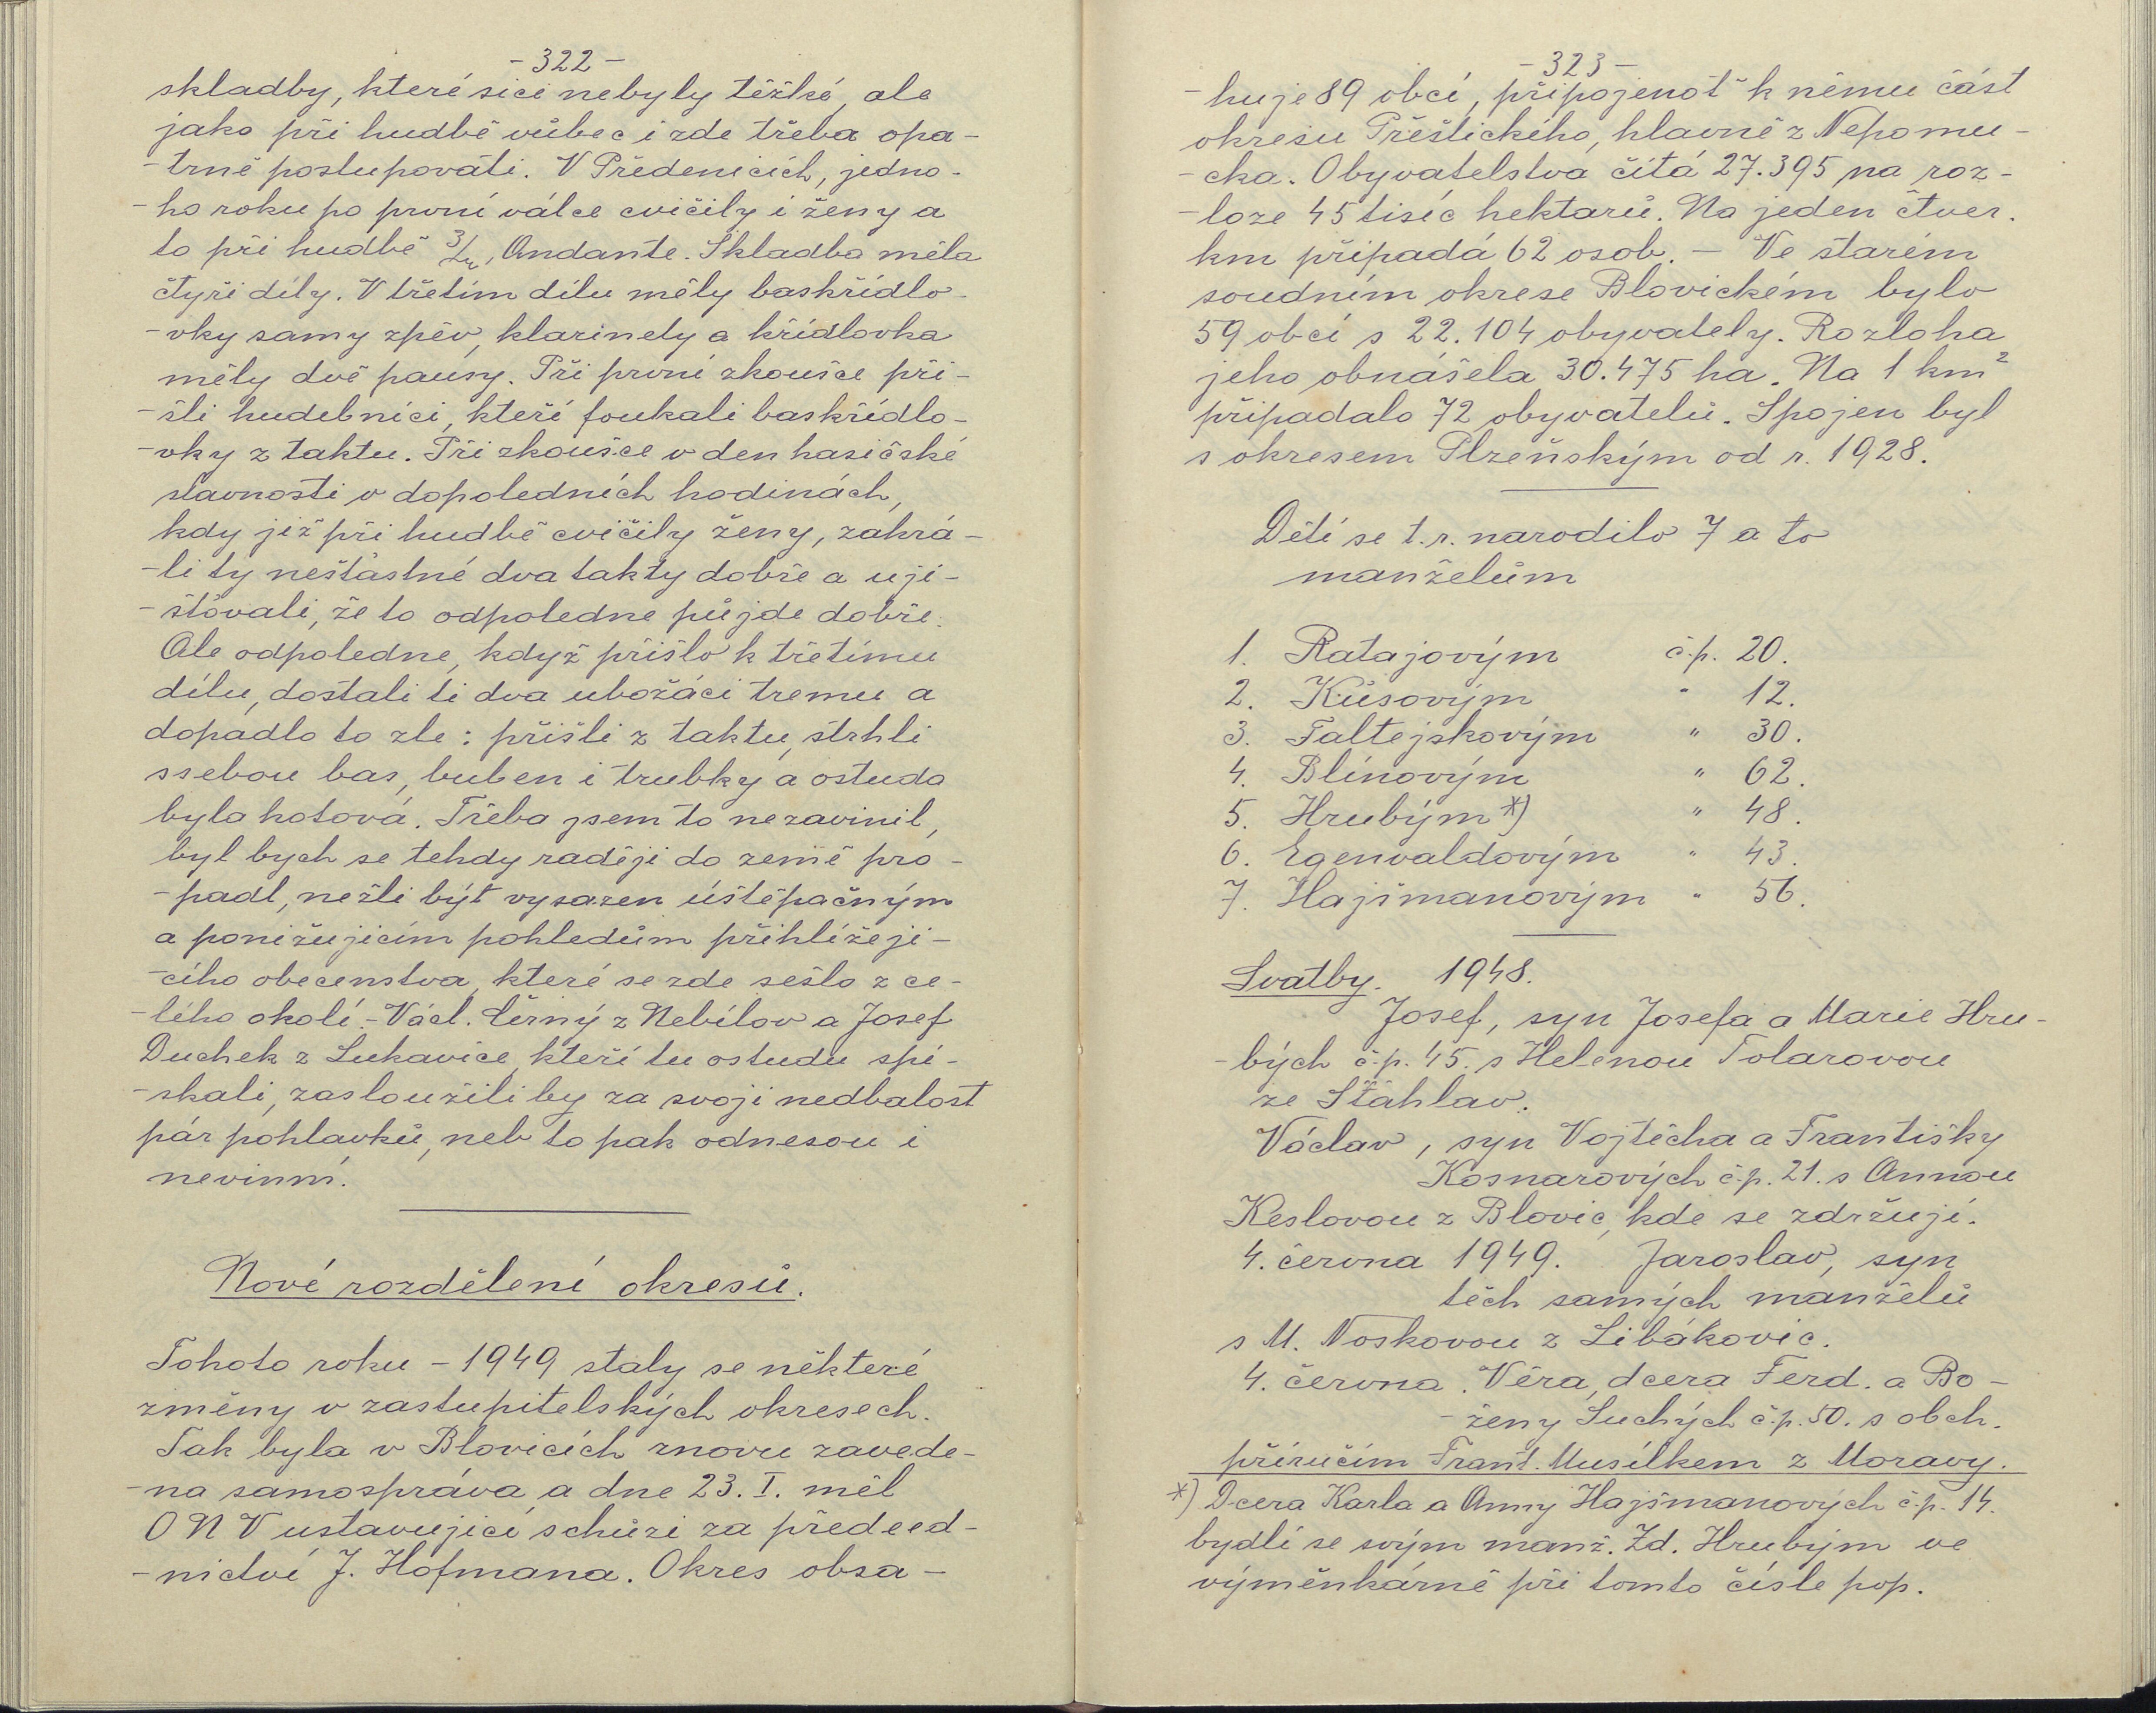 - 322 -
skladby, které sice nebyly těžké, ale
jako při hudbě vůbec i zde třeba opa-
-trně postupovati. V Předenicích, jedno-
-ho roku po první válce cvičily i ženy a
to při hudbě 3/4, Andante. Skladba měla
čtyři díly. V třetím dílu měly baskřídlo-
-vky samy zpěv, klarinety a křídlovka
měly dvě pausy. Při první zkoušce při-
-šli hudebníci, kteří foukali baskřídlo-
-vky z taktu. Při zkoušce v den hasičské
slavnosti v dopoledních hodinách,
kdy již při hudbě cvičily ženy, zahrá-
-li ty nešťastné dva takty dobře a uji-
-šťovali, že to odpoledne půjde dobře.
Ale odpoledne, když přišlo k třetímu
dílu, dostali ti dva ubožáci tremu a
dopadlo to zle: přišli z taktu, strhli
ssebou bas, buben i trubky a ostuda
byla hotová. Třeba jsem to nezavinil,
byl bych se tehdy raději do země pro-
-padl, nežli být vysazen úštěpačným
a ponižujícím pohledům přihlížejí-
-cího obecenstva, které se zde sešlo z ce-
-lého okolí. - Václ. Černý z Nebílov a Josef
Duchek z Lukavice, kteří tu ostudu spí-
-skali, zasloužili by za svoji nedbalost
pár pohlavků, neb to pak odnesou i
nevinní.
Nové rozdělení okresů.
Tohoto roku - 1949 staly se některé
změny v zastupitelských okresech.
Tak byla v Blovicích znovu zavede-
-na samospráva a dne 23. I. měl
ONV ustavující schůzi za předsed-
-nictví J. Hofmana. Okres obsa-
- 323 -
-huje 89 obcí, připojenoť k němu část
okresu Přeštického, hlavně z Nepomu-
-cka. Obyvatelstva čítá 27.395 na roz-
-loze 45 tisíc hektarů. Na jeden čtver.
km připadá 62 osob. - Ve starém
soudním okrese Blovickém bylo
59 obcí s 22.104 obyvately. Rozloha
jeho obnášela 30.475 ha. Na 1 km²
připadalo 72 obyvatelů. Spojen byl
s okresem Plzeňským od r. 1928.
Dětí se t. r. narodilo 7 a to
manželům
1. Ratajovým č.p. 20.
2. Kůsovým " 12.
3. Taltejskovým " 30.
4. Blínovým " 62.
5. Hrubým *) " 48.
6. Egenvaldovým " 43.
7. Hajšmanovým " 56.
Svatby. 1948.
Josef, syn Josefa a Marie Hru-
-bých č.p. 45. s Helenou Tolarovou
ze Šťáhlav.
Václav, syn Vojtěcha a Františky
Kosnarových č.p. 21. s Annou
Keslovou z Blovic, kde se zdržují.
4. června 1949. Jaroslav, syn
těch samých manželů
s M. Noskovou z Libákovic.
4. června. Věra, dcera Ferd. a Bo-
-ženy Suchých č.p. 50. s obch.
příručím Frant. Musílkem z Moravy.
*) Dcera Karla a Anny Hajšmanových č.p. 14.
bydlí se svým manž. Zd. Hrubým ve
výměnkárně při tomto čísle pop.